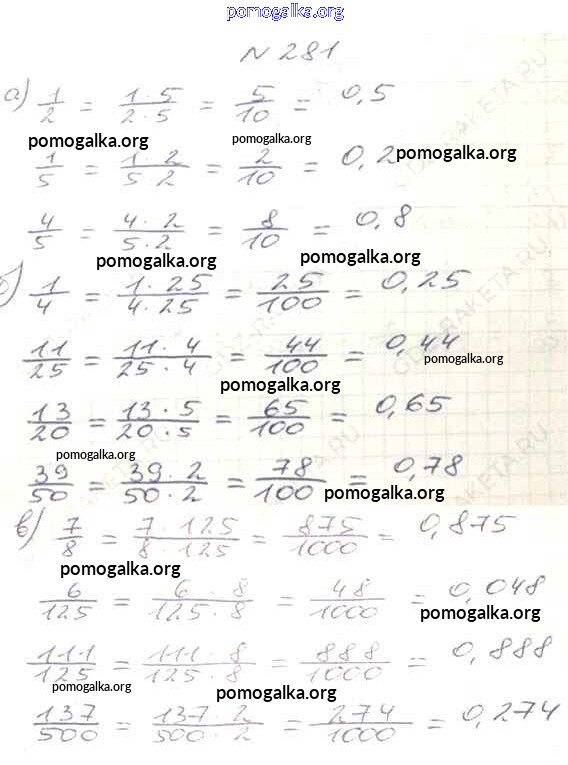 pomogalka.org
N 281
а) 1/2 = 1·5/2·5 = 5/10 = 0,5
pomogalka.org pomogalka.org
1/5 = 1·2/5·2 = 2/10 = 0,2 pomogalka.org
4/5 = 4·2/5·2 = 8/10 = 0,8
pomogalka.org pomogalka.org
б) 1/4 = 1·25/4·25 = 25/100 = 0,25
11/25 = 11·4/25·4 = 44/100 = 0,44
pomogalka.org
pomogalka.org
13/20 = 13·5/20·5 = 65/100 = 0,65
pomogalka.org
39/50 = 39·2/50·2 = 78/100 = 0,78
pomogalka.org
в) 7/8 = 7·125/8·125 = 875/1000 = 0,875
pomogalka.org
6/125 = 6·8/125·8 = 48/1000 = 0,048
pomogalka.org
111/125 = 111·8/125·8 = 888/1000 = 0,888
pomogalka.org pomogalka.org
137/500 = 137·2/500·2 = 274/1000 = 0,274